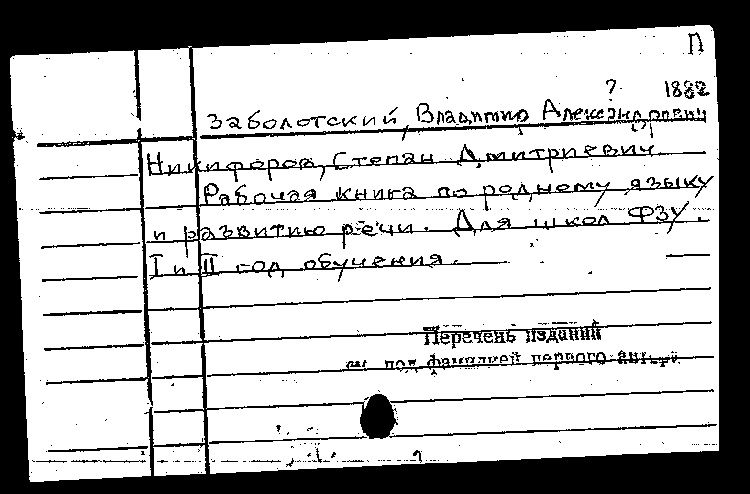 П
? 1882
Заболотский, Владимир Александрович
Никифоров, Степан Дмитриевич
Рабочая книга по родному языку
и развитию речи. Для школ ФЗУ.
I и II год обучения.
Перечень изданий
см. под фамилией первого автора